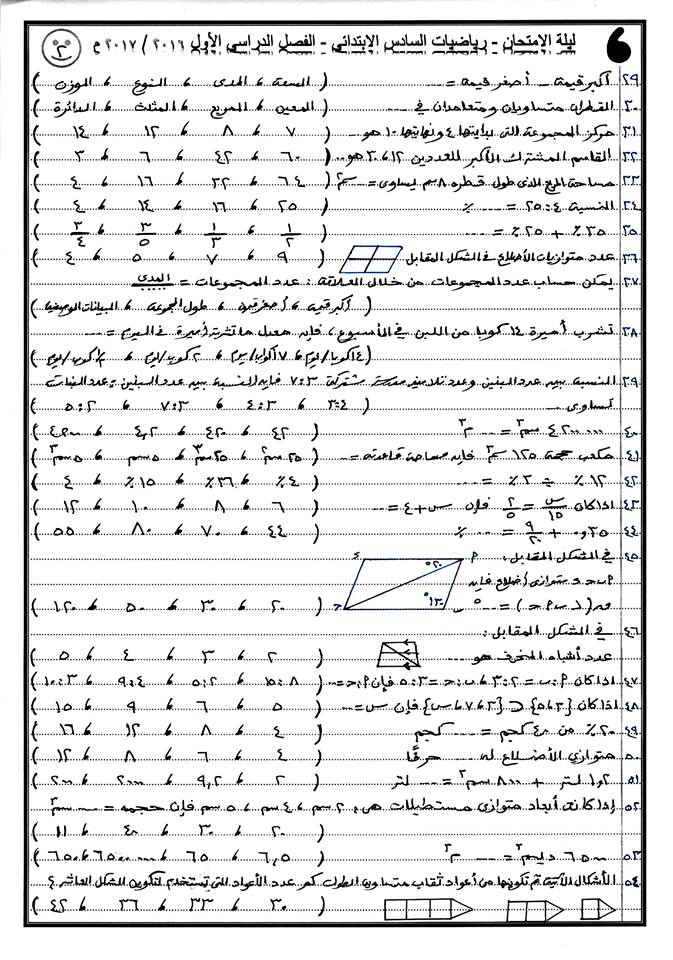 ليلة الامتحان - رياضيات السادس الابتدائي - الفصل الدراسي الأول ٢٠١٦ / ٢٠١٧ م
٢٩ أكبر قيمة - أصغر قيمة = .... ( السعة ، المدى ، النوع ، الوزن )
٣٠ القطران متساويان ومتعامدان في .... ( المعين ، المربع ، المثلث ، الدائرة )
٣١ مركز المجموعة التى بدايتها ٤ ونهايتها ١٠ هو .... ( ٧ ، ٨ ، ١٢ ، ١٤ )
٣٢ القاسم المشترك الأكبر للعددين ١٢ ، ٣٠ هو .... ( ٦٠ ، ٤٢ ، ٦ ، ٣ )
٣٣ مساحة المربع الذى طول قطره ٨ سم يساوى = .... سم٢ ( ٦٤ ، ٣٢ ، ١٦ ، ٤ )
٣٤ النسبة ٤ : ٢٥ = .... ٪ ( ٢٥ ، ١٦ ، ١٤ ، ٤ )
٣٥ ٣٥٪ + ٢٥٪ = .... ( ١/٢ ، ١/٣ ، ٣/٥ ، ٣/٤ )
٣٦ عدد متوازيات الأضلاع فى الشكل المقابل ( ٩ ، ٧ ، ٥ ، ٤ )
٣٧ يمكن حساب عدد المجموعات من خلال العلاقة : عدد المجموعات = المدى / ....
( أكبر قيمة ، أصغر قيمة ، طول المجموعة ، البيانات الوصفية )
٣٨ تشرب أميرة ١٤ كوبا من اللبن فى الأسبوع ، فإن معدل ما تشربه أميرة فى اليوم = ....
( ١٤ كوبا/يوم ، ٧ أكواب/يوم ، ٢ كوب/يوم ، ٣ كوب/يوم )
٣٩ النسبة بين عدد البنين وعدد تلاميذ مدرسة مشتركة ٣ : ٧ فإن النسبة بين عدد البنين : عدد البنات
تساوى .... ( ٣:٤ ، ٤:٣ ، ٧:٣ ، ٥:٢ )
٤٠ ٤٢٠٠٠٠٠ سم٣ = .... م٣ ( ٤٢ ، ٤٢٠ ، ٤,٢ ، ٤٢٠٠ )
٤١ مكعب حجمه ١٢٥ سم٣ فإن مساحة قاعدته = .... ( ٢٥ سم٢ ، ٢٥ سم٣ ، ٥ سم ، ٥ سم٢ )
٤٢ ١٢٪ ÷ ٣٪ = .... ( ٤٪ ، ٣٦٪ ، ١٥٪ ، ٤ )
٤٣ اذا كان س/١٥ = ٢/٥ فإن س + ٤ = .... ( ٦ ، ٨ ، ١٠ ، ١٢ )
٤٤ ٠,٣٥ + ٩/٢٠ = .... ٪ ( ٤٤ ، ٧٠ ، ٨٠ ، ٥٥ )
٤٥ فى الشكل المقابل :
٢ ب ح د متوازى أضلاع فإن
ق ( د ب ٢ ح ) = .... ° ( ٢٠ ، ٣٠ ، ٥٠ ، ١٢٠ )
٤٦ فى الشكل المقابل :
عدد أشباه المنحرف هو .... ( ٢ ، ٣ ، ٤ ، ٥ )
٤٧ اذا كان ٢ : ب = ٢ : ٣ ، ب : ح = ٣ : ٥ فإن ٢ : ح = ( ٨ : ١٥ ، ٢ : ٥ ، ٤ : ٩ ، ٣ : ١٠ )
٤٨ اذا كان { ٣ ، ٥ } ⊂ { ٣ ، ٧ ، س } فإن س = .... ( ٥ ، ٦ ، ٩ ، ١٥ )
٤٩ ٢٠٪ من ٤٠ كجم = .... كجم ( ٤ ، ٨ ، ١٢ ، ١٦ )
٥٠ متوازى الأضلاع له .... حرفًا ( ٤ ، ٦ ، ٨ ، ١٢ )
٥١ ١,٢ لتر + ٨٠٠ سم٣ = .... لتر ( ٢ ، ٩,٢ ، ٢٠٠٠ ، ٢٠٠ )
٥٢ إذا كانت أبعاد متوازى مستطيلات هى : ٢ سم ، ٤ سم ، ٥ سم فإن حجمه = .... سم٣
( ٢٠ ، ٣٠ ، ٤٠ ، ١١ )
٥٣ ٦٥٠٠ ديسم٣ = .... م٣ ( ٦,٥ ، ٦٥ ، ٦٥٠ )
٥٤ الأشكال الآتية تم تكوينها من أعواد ثقاب متساوية الطول كم عدد الأعواد التى تستخدم لتكوين الشكل العاشر ؟
( ٣٠ ، ٣٣ ، ٣٦ ، ٤٢ )